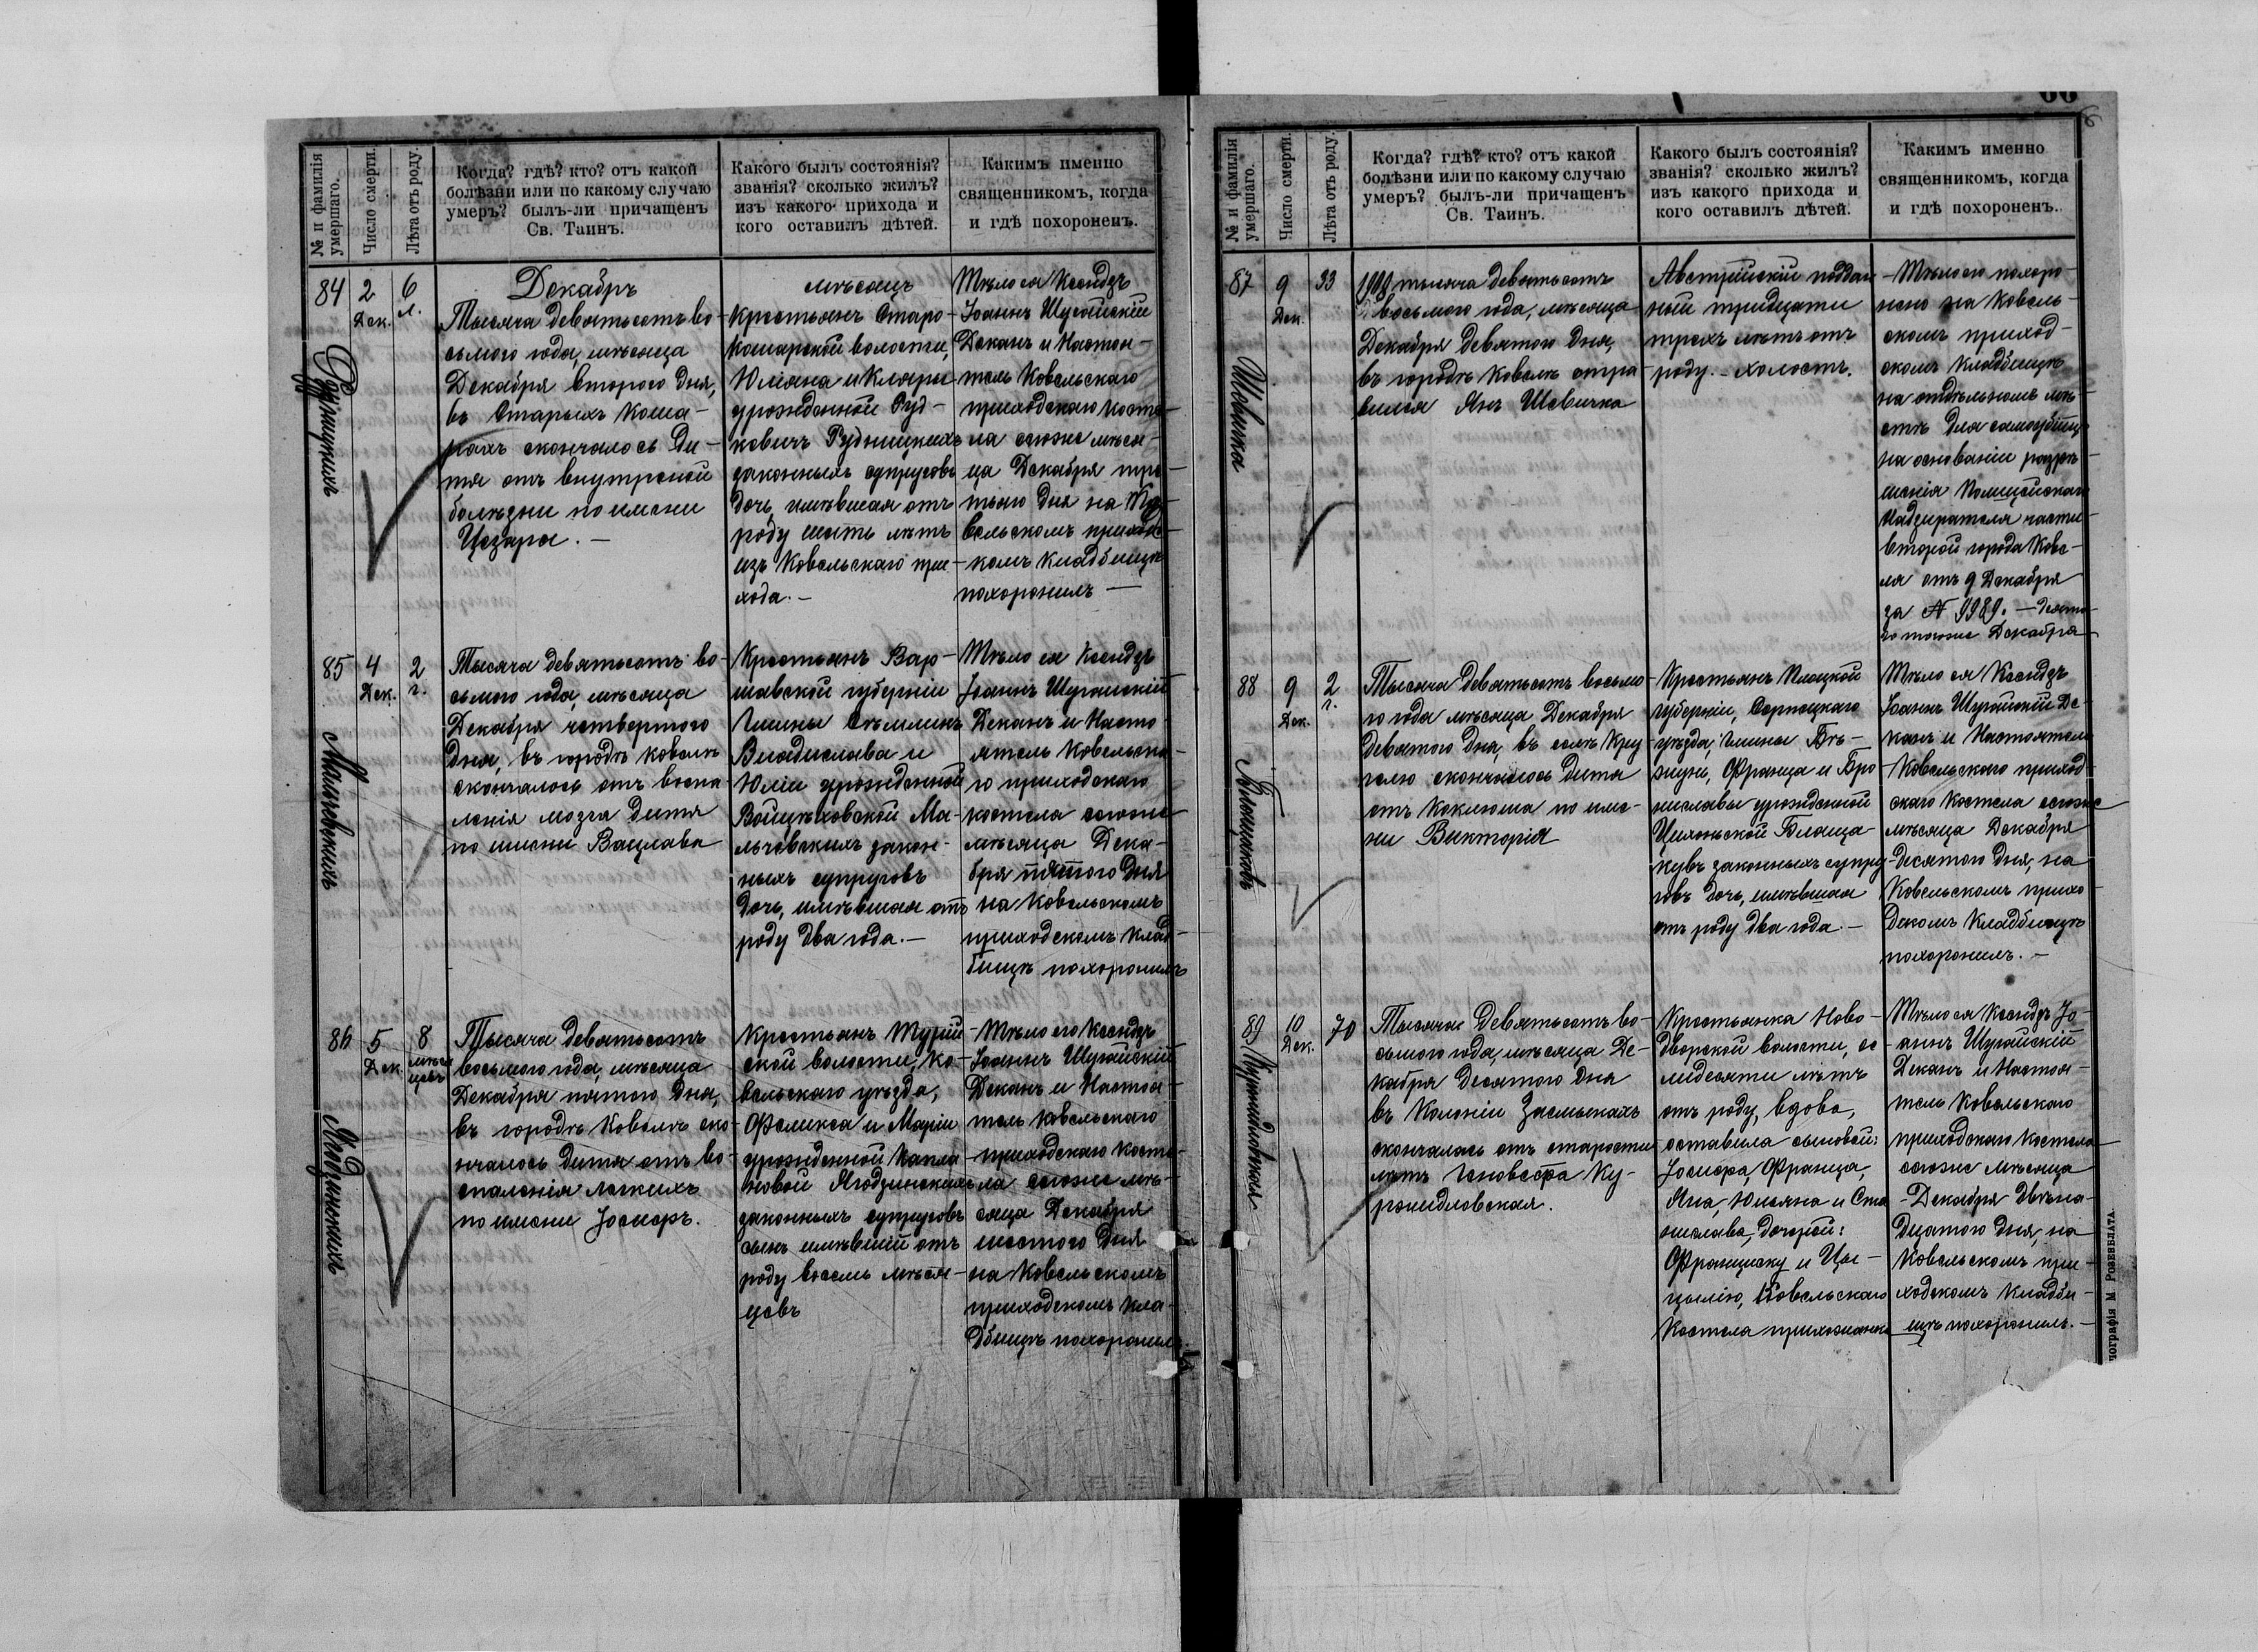 № и фамилія умершаго.
Число смерти.
Лѣта отъ роду.
Когда? гдѣ? кто? отъ какой
болѣзни или по какому случаю
умеръ? былъ-ли причащенъ
Св. Таинъ.
Какого былъ состоянія?
званія? сколько жилъ?
изъ какого прихода и
кого оставилъ дѣтей.
Какимъ именно
священникомъ, когда
и гдѣ похороненъ.
84
Рудницкихъ
2
Дек.
6
л.
Декабрь
Тысяча девятьсотъ во-
сьмого года, мѣсяца
Декабря второго дня,
въ Старыхъ Коша-
рахъ скончалось Ди-
тя отъ внутреной
болѣзни по имени
Цезара. —
мѣсяцъ
Крестьянъ Старо-
Кошарской волости,
Юліяна и Клары
урожденной Руд-
кевичъ Рудницкихъ
законныхъ супруговъ
дочь, имѣвшая отъ
роду шесть лѣтъ
изъ Ковельскаго при-
хода. —
Тѣло ея Ксендзъ
Іоаннъ Шугайскій
Деканъ и Настоя-
тель Ковельскаго
приходскаго косте-
ла сегоже мѣся-
ца Декабря тре-
тьяго дня на Ко-
вельскомъ приходс-
комъ кладбищѣ
похоронилъ —
85
Мальчевскихъ
4
Дек.
2
г.
Тысяча девятьсотъ во-
сьмого года, мѣсяца
Декабря четвертого
дня, въ городѣ Ковелѣ
скончалось отъ воспа
ленія мозга дитя
по имени Вацлава
Крестьянъ Вар-
шавской губерніи
Гмины
Владислава и
Юліи урожденной
Войцѣховской Ма-
льчевскихъ закон-
ныхъ супруговъ
дочь, имѣвшая отъ
роду два года. —
Тѣло ея Ксендзъ
Іоаннъ Шугайскій
Деканъ и Насто-
ятель Ковельска-
го приходскаго
костела сегоже
мѣсяца Дека-
бря пятого дня
на Ковельскомъ
приходскомъ клад-
бищѣ похоронилъ
86
Ягодзинскихъ
5
Дек.
8
мѣся
цевъ
Тысяча девятьсотъ
восьмого года, мѣсяца
Декабря пятого дня,
въ городѣ Ковелѣ ско-
нчалось дитя отъ во-
спаленія легкихъ
по имени Іосифъ.
Крестьянъ Турій-
ской волости, Ко-
вельскаго уѣзда,
Феликса и Маріи
урожденной Капла
новой Ягодзинскихъ
законныхъ супруговъ
сынъ имѣвшій отъ
роду восемь мѣся-
цевъ
Тѣло его Ксендзъ
Іоаннъ Шугайскій
Деканъ и Настоя-
тель Ковельскаго
приходскаго косте-
ла сегоже мѣ-
сяца Декабря
шестого дня
на Ковельскомъ
приходскомъ кла-
дбищѣ похоронилъ
№ и фамилія умершаго.
Число смерти.
Лѣта отъ роду.
Когда? гдѣ? кто? отъ какой
болѣзни или по какому случаю
умеръ? былъ-ли причащенъ
Св. Таинъ.
Какого былъ состоянія?
званія? сколько жилъ?
изъ какого прихода и
кого оставилъ дѣтей.
Какимъ именно
священникомъ, когда
и гдѣ похороненъ.
87
Шевичка
9
Дек.
33
1908 тысяча девятьсотъ
восьмого года, мѣсяца
Декабря девятого дня,
въ городѣ Ковелѣ отра
вился Янъ Шевичка
Австрійскій поддан
ный тридцати
трехъ лѣтъ отъ
роду. — холостъ.
Тѣло его похоро-
нено на Ковель-
скомъ приход-
скомъ кладбищѣ
на отдѣльномъ мѣ-
стѣ для самоубійцъ
на основаніи разрѣ-
шенія Полицейскаго
Надзирателя части
второй города Кове-
ля отъ 9 Декабря
за № 9989. — десята-
го тогоже Декабря
88
9
Дек.
2
г.
Тысяча девятьсотъ восьмо
го года мѣсяца Декабря
девятого дня, въ селѣ Кру
гелю скончалось дитя
отъ коклюша по име-
ни Викторія
Крестьянъ Плоцкой
губерніи, Серпецкаго
уѣзда, гмины Бѣ-
жунь, Франца и Бро
ниславы урожденной
законныхъ супру-
говъ дочь, имѣвшая
отъ роду два года. —
Тѣло ея Ксендзъ
Іоаннъ Шугайскій Де-
канъ и Настоятель
Ковельскаго приход-
скаго костела сегоже
мѣсяца Декабря
десятого дня, на
Ковельскомъ прихо-
дскомъ кладбищѣ
похоронилъ. —
89
10
Дек.
70
Тысяча девятьсотъ во-
сьмого года, мѣсяца Де-
кабря десятого дня
въ Колоніи Засмыкахъ
скончалась отъ старости
лѣтъ Геновефа Ку-
ропидловская.
Крестьянка Ново-
дворской волости, се-
мидесяти лѣтъ
отъ роду, вдова,
оставила сыновей:
Іосифа, Франца,
Яна, Юльяна и Ста
нислава, дочерей:
Франциску и Це-
цылію, Ковельскаго
Костела прихожанка
Тѣло ея Ксендзъ Іо-
аннъ Шугайскій
Деканъ и Настоя-
тель Ковельскаго
приходскаго костела
сегоже мѣсяца
Декабря двѣна-
дцатого дня, на
Ковельскомъ при-
ходскомъ кладби-
щѣ похоронилъ. —
пографія М. Розенблата.